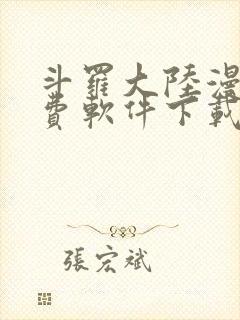 斗羅大陸漫
費軟件下載
張宏斌